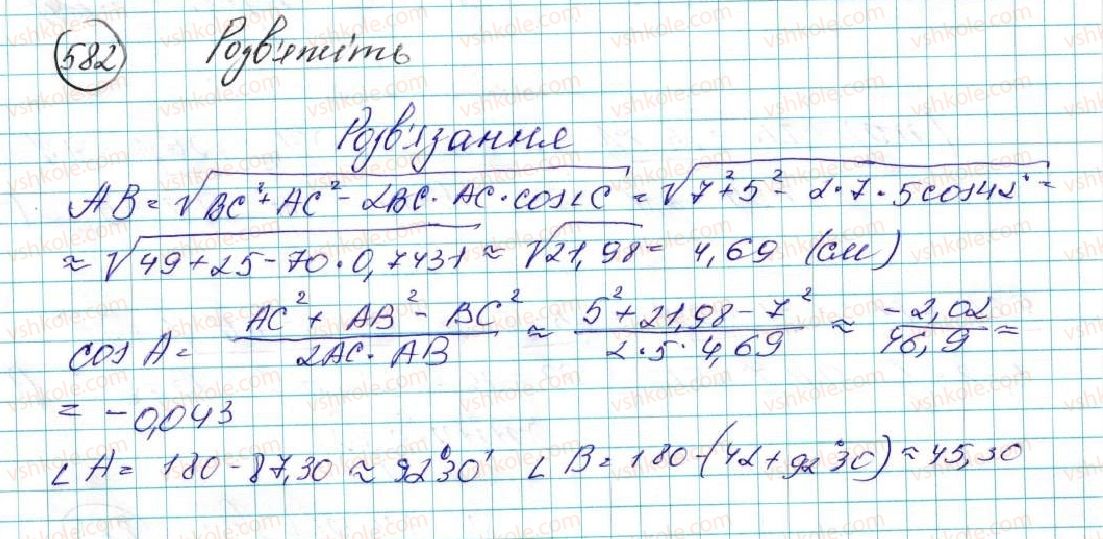 582 Розв'яжіть
Розв'язання
AB = √(BC² + AC² - 2BC · AC · cos∠C) = √(7² + 5² - 2 · 7 · 5 cos42°) =
≈ √(49 + 25 - 70 · 0,7431) ≈ √21,98 = 4,69 (см)
cos A = (AC² + AB² - BC²)/(2AC · AB) ≈ (5² + 21,98 - 7²)/(2 · 5 · 4,69) ≈ (-2,02)/(46,9) =
= -0,043
∠A = 180 - 87,30 ≈ 92°30' ∠B = 180 - (42 + 92°30) ≈ 45,30